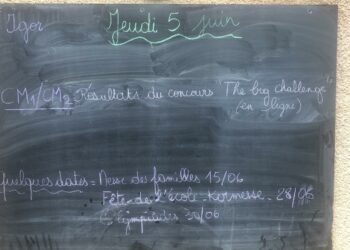 Igor
Jeudi 5 juin
CM1/CM2 Résultats du concours "The big challenge"
(en ligne)
quelques dates = des familles 15/06
Fête de l'école - kermesse - 28/06
30/06